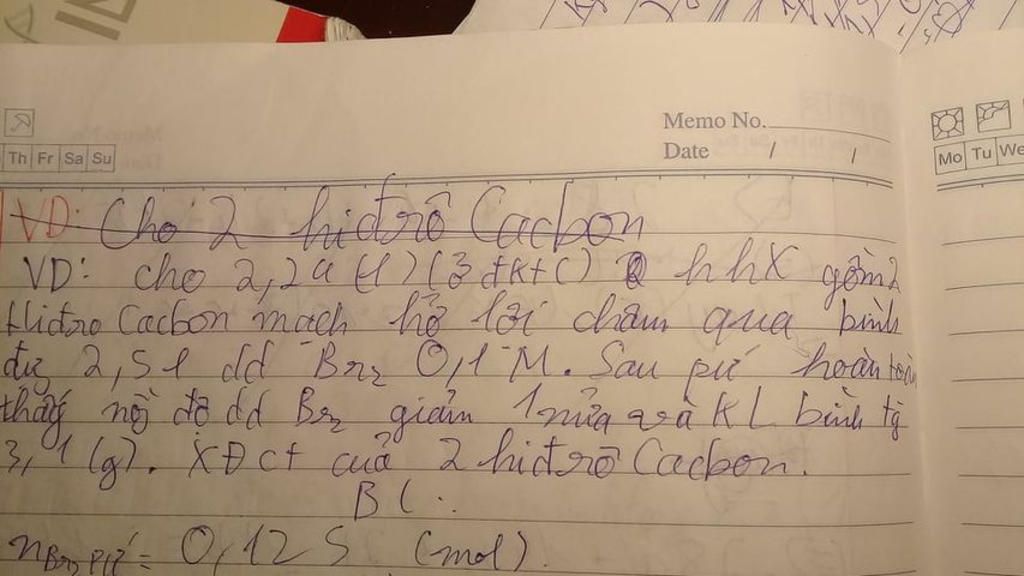 Memo No.
Date / /
Th Fr Sa Su
Mo Tu We
VD: Cho 2 hiđrô Cacbon
VD: cho 2,24 (l) (ở đktc) hhX gồm 2
Hiđro Cacbon mạch hở lội chậm qua bình
đựg 2,5 l dd Br2 0,1 M. Sau pứ hoàn toàn
thấy nồg độ dd Br2 giảm 1 nửa và KL bình tăg
3,1 (g). XĐ ct của 2 hiđrô Cacbon.
BL:
nBr2 pứ = 0,125 (mol).